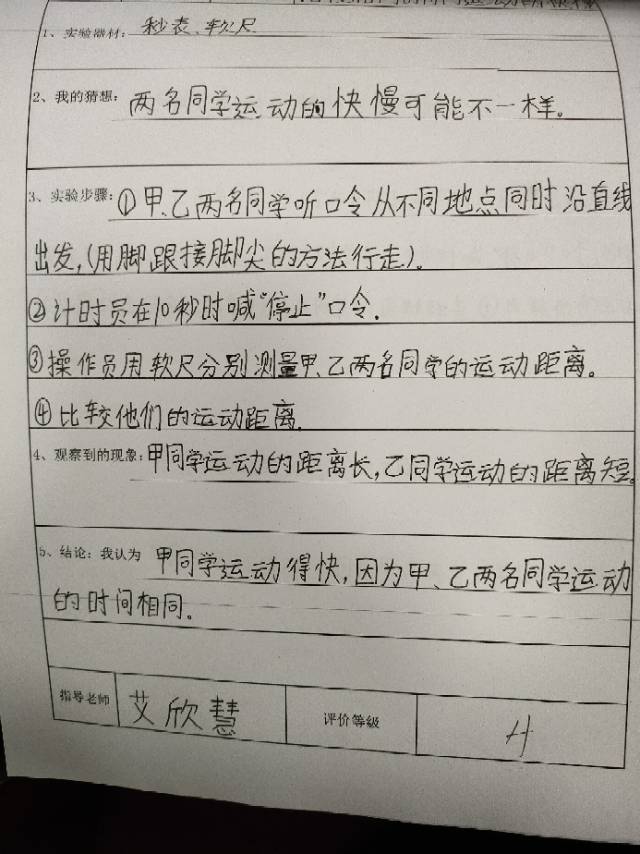 1、实验器材：秒表、软尺
2、我的猜想：两名同学运动的快慢可能不一样。
3、实验步骤：①甲、乙两名同学听口令从不同地点同时沿直线
出发,(用脚跟接脚尖的方法行走)。
②计时员在10秒时喊“停止”口令.
③操作员用软尺分别测量甲、乙两名同学的运动距离。
④比较他们的运动距离.
4、观察到的现象：甲同学运动的距离长,乙同学运动的距离短.
5、结论：我认为 甲同学运动得快,因为甲、乙两名同学运动
的时间相同。
指导老师 艾欣慧 评价等级